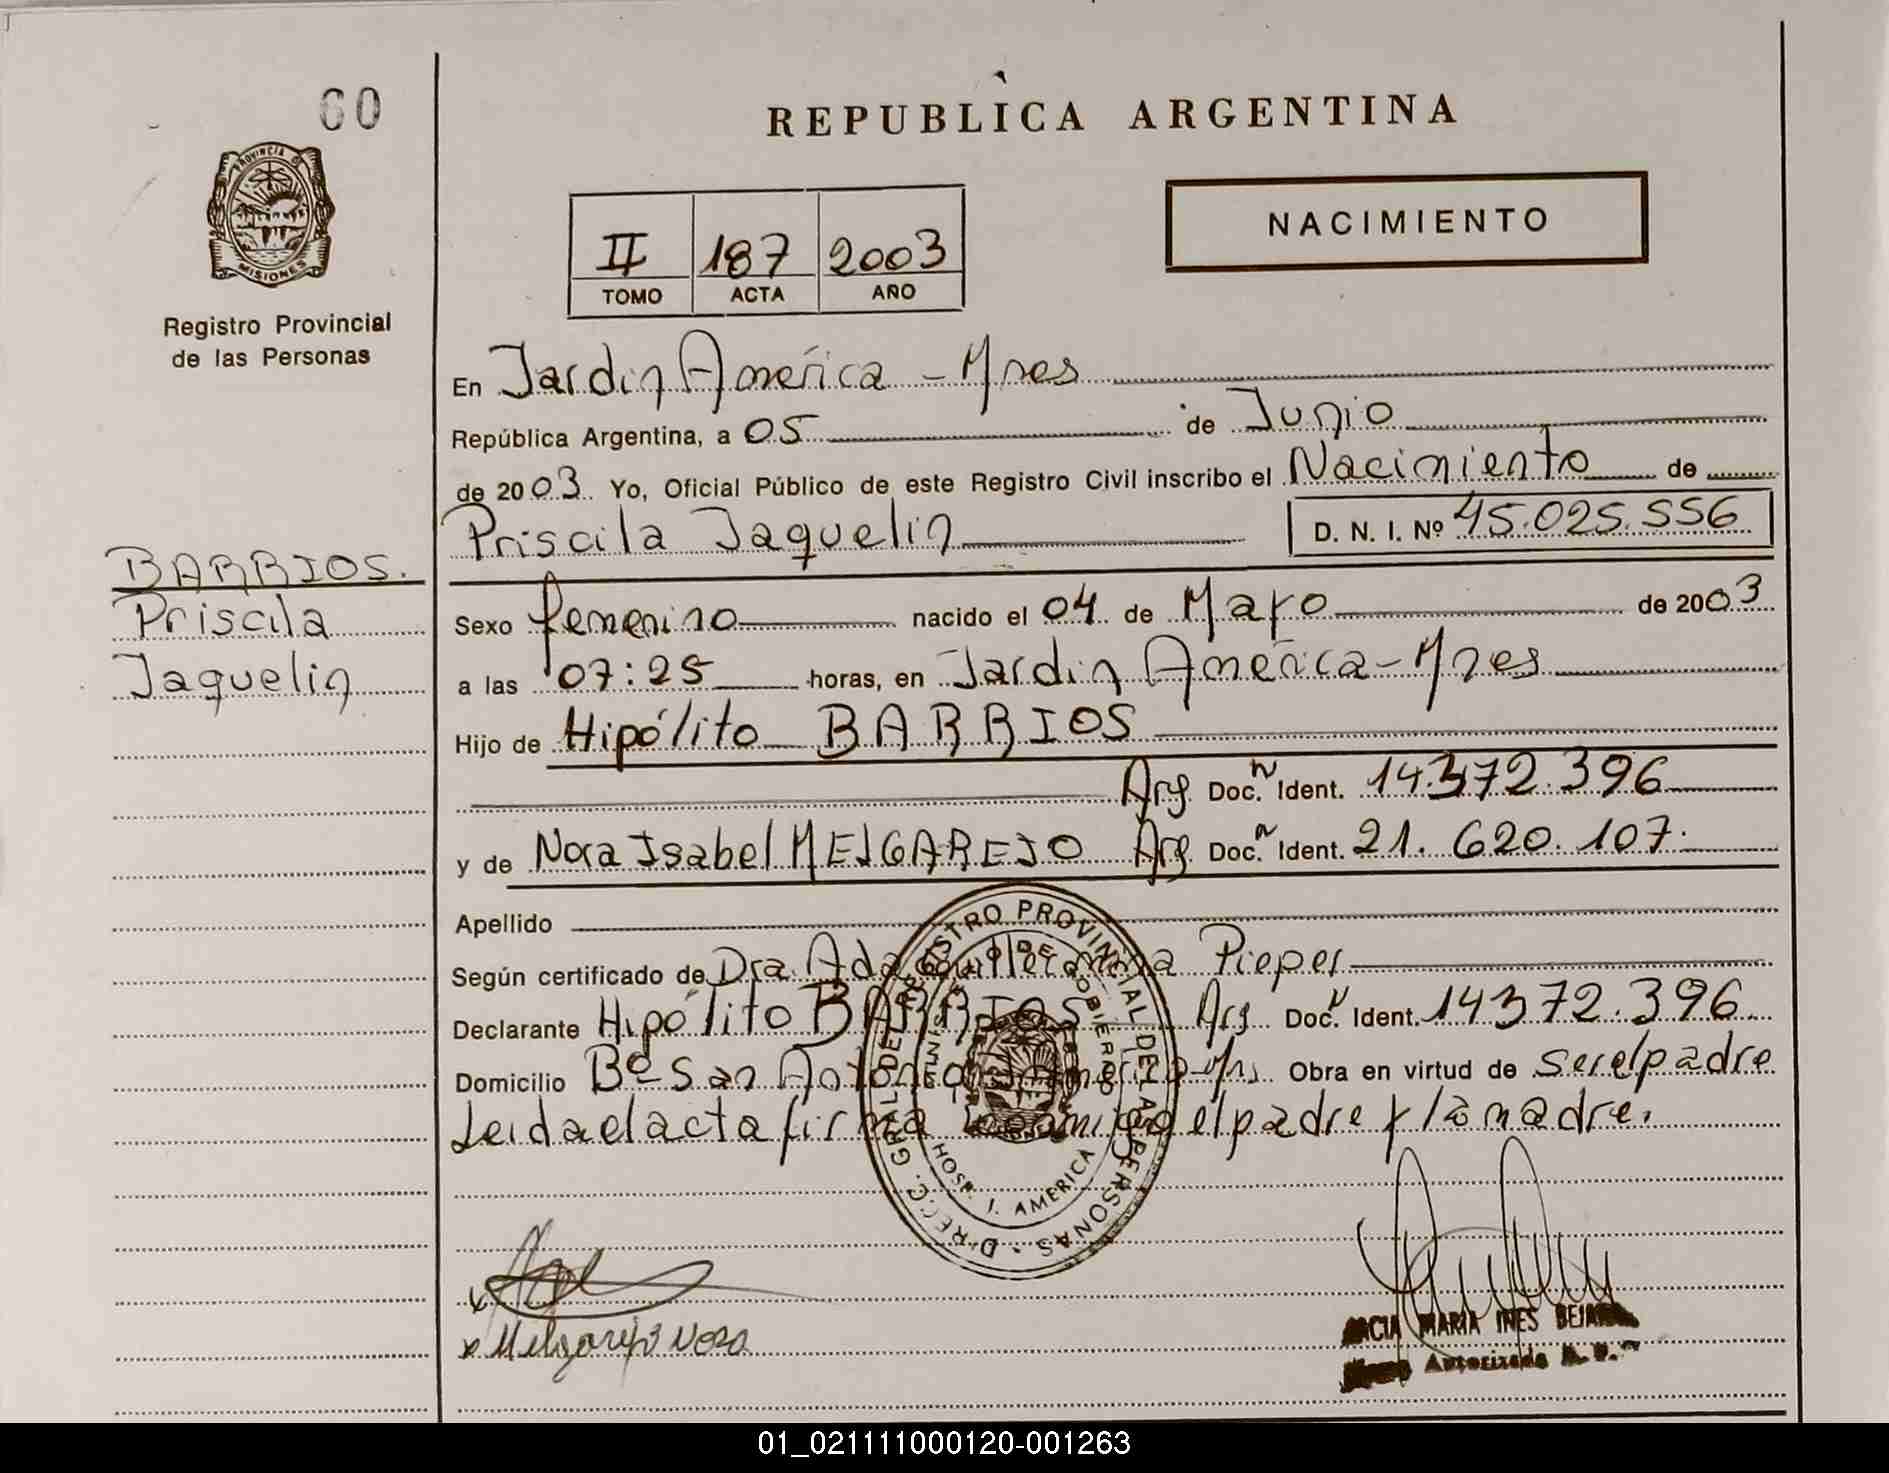 60
REPUBLICA ARGENTINA
PROVINCIA DE
MISIONES
Registro Provincial
de las Personas
II 187 2003
TOMO ACTA AÑO
NACIMIENTO
En Jardin América - Mnes
República Argentina, a 05 de Junio
de 2003. Yo, Oficial Público de este Registro Civil inscribo el Nacimiento de
Priscila Jaquelin D. N. I. Nº 45.025.556
BARRIOS.
Priscila
Jaquelin
Sexo femenino nacido el 04 de Mayo de 2003
a las 07:25 horas, en Jardin América - Mnes
Hijo de Hipólito BARRIOS
Arg. Doc. n Ident. 14.372.396
y de Nora Isabel MELGAREJO Arg. Doc. n Ident. 21.620.107.
Apellido
Según certificado de Dra. Ada Guillermina Pieper
Declarante Hipólito BARRIOS Arg. Doc. N Ident. 14372.396
Domicilio Bº San Antonio Obra en virtud de ser el padre
Leida el acta firma el padre y la madre.
DIRECC. GRAL. DEL REGISTRO PROVINCIAL DE LAS PERSONAS
DE GOBIERNO
HOSP. J. AMERICA
x
x Melgarejo Nora
MARIA INES
Autorizada
01_021111000120-001263